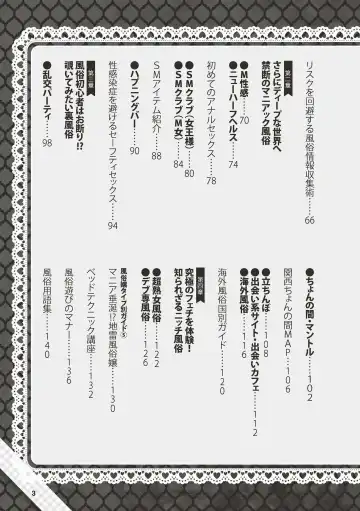 リスクを回避する風俗情報収集術……66
第二章
さらにディープな世界へ
禁断のマニアック風俗
●M性感……70
●ニューハーフヘルス……74
初めてのアナルセックス……78
●SMクラブ(女王様)……80
●SMクラブ(M女)……84
SMアイテム紹介……88
●ハプニングバー……90
性感染症を避けるセーフティセックス……94
第三章
風俗初心者はお断り!?
覗いてみたい裏風俗
●乱交パーティ……98
●ちょんの間・マントル……102
関西ちょんの間MAP……106
●立ちんぼ……108
●出会い系サイト・出会いカフェ……112
●海外風俗……116
海外風俗国別ガイド……120
第四章
究極のフェチを体験!
知られざるニッチ風俗
●超熟女風俗……122
●デブ専風俗……126
風俗嬢タイプ別ガイド⑤
マニア垂涎!?地雷風俗嬢……130
ベッドテクニック講座……132
風俗遊びのマナー……136
風俗用語集……140
3